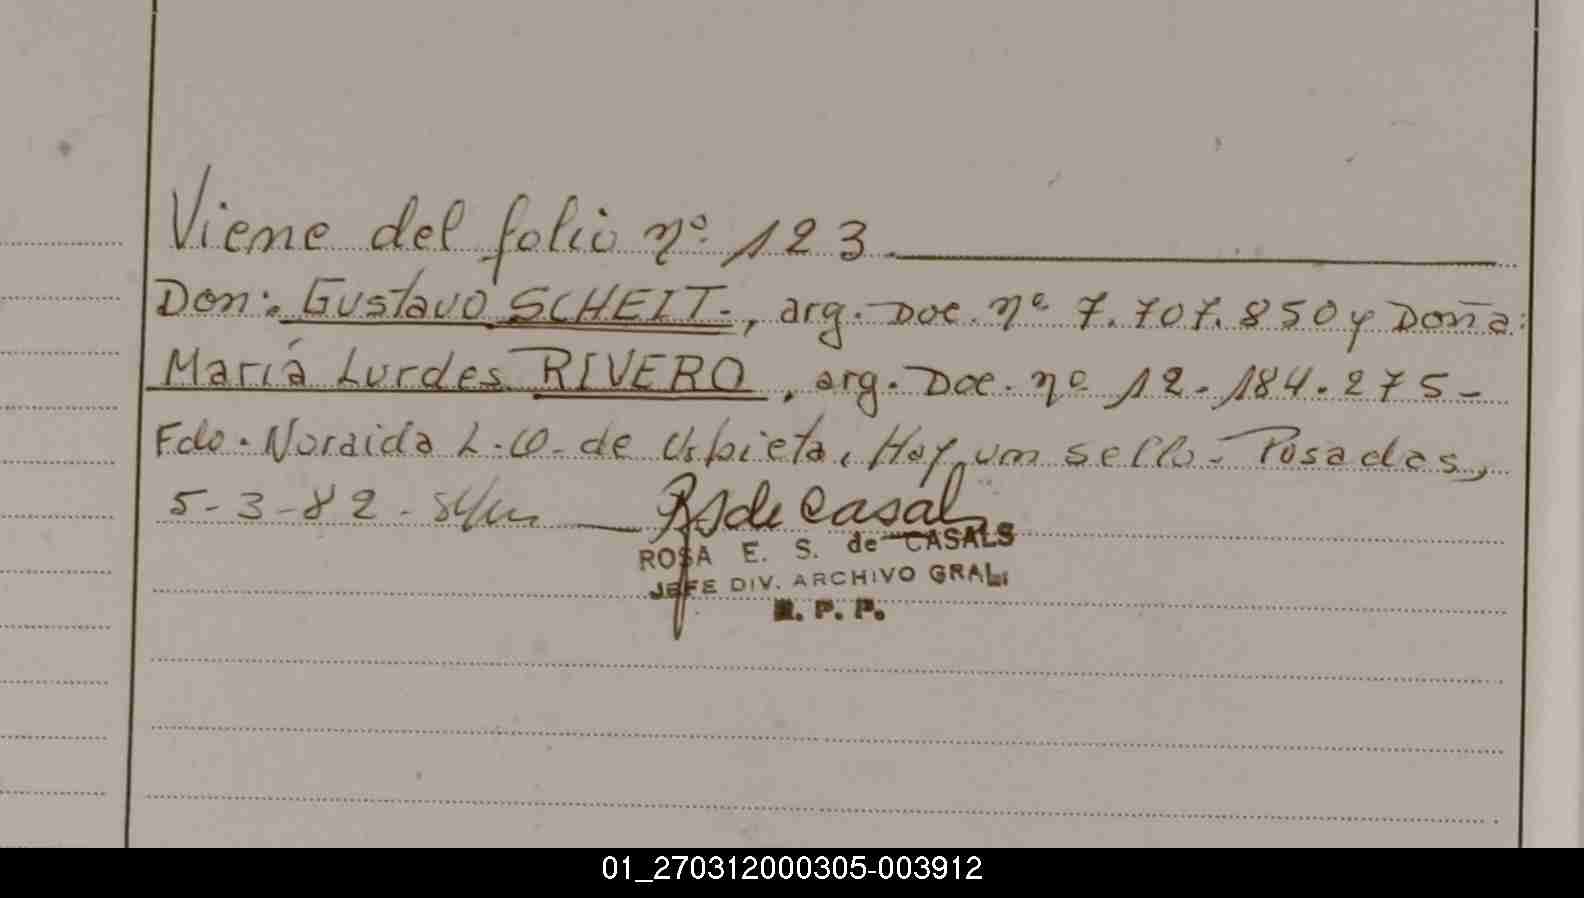 Viene del folio nº 123
Don: Gustavo SCHEIT-, arg. Doc. nº 7.707.850 y Doña:
María Lurdes RIVERO, arg. Doc. nº 12.184.275-
Fdo. Noraida L. O. de Urbieta. Hay un sello. Posadas,
5-3-82.
R S de Casals
ROSA E. S. de CASALS
JEFE DIV. ARCHIVO GRAL.
R. P. P.
01_270312000305-003912